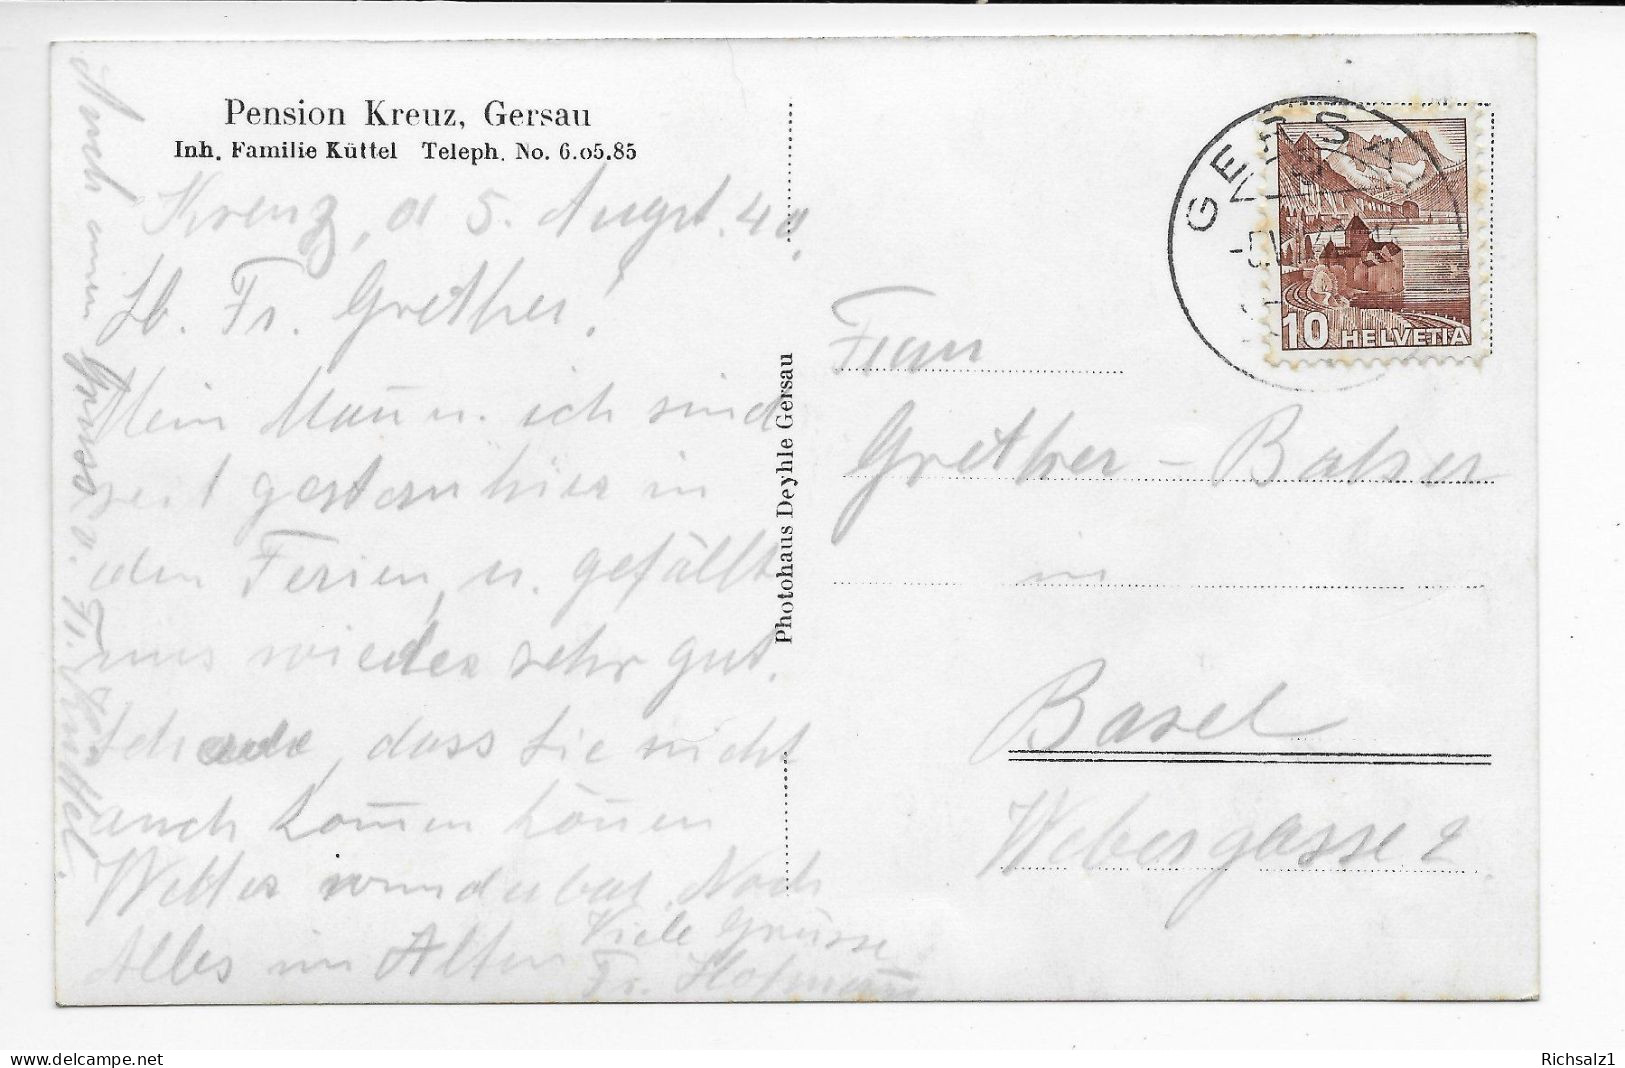 Pension Kreuz, Gersau
Inh. Familie Küttel Teleph. No. 6.05.85
Kreuz, d 5. August. 40.
Lb. Fr. Grether!
Mein Mann u. ich sind
seit gestern hier in
den Ferien, u. gefällt
uns wieder sehr gut.
Schade, dass Sie nicht
auch kom̅en kön̅en
Wetter wunderbar. Noch
Alles im Alten
Viele Grüsse
Fr. Hofmann
Auch einen Gruss v. Fr. Küttel.
Photohaus Deyhle Gersau
GERSAU
10 HELVETIA
Frau
Grether-Balser
in
Basel
Webergasse 2.
delcampe.net
Richsalz1